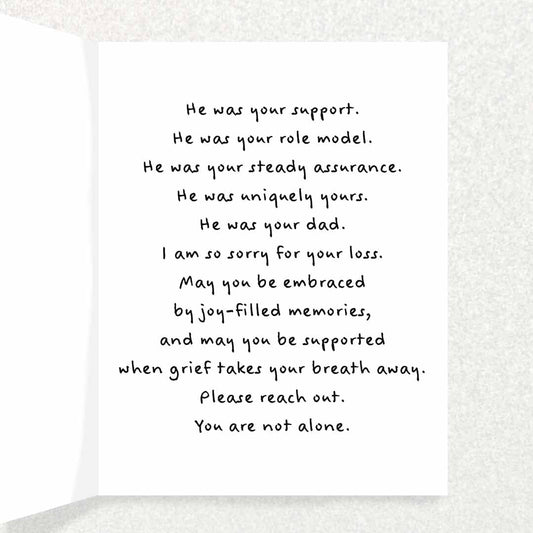 He was your support.
He was your role model.
He was your steady assurance.
He was uniquely yours.
He was your dad.
I am so sorry for your loss.
May you be embraced
by joy-filled memories,
and may you be supported
when grief takes your breath away.
Please reach out.
You are not alone.